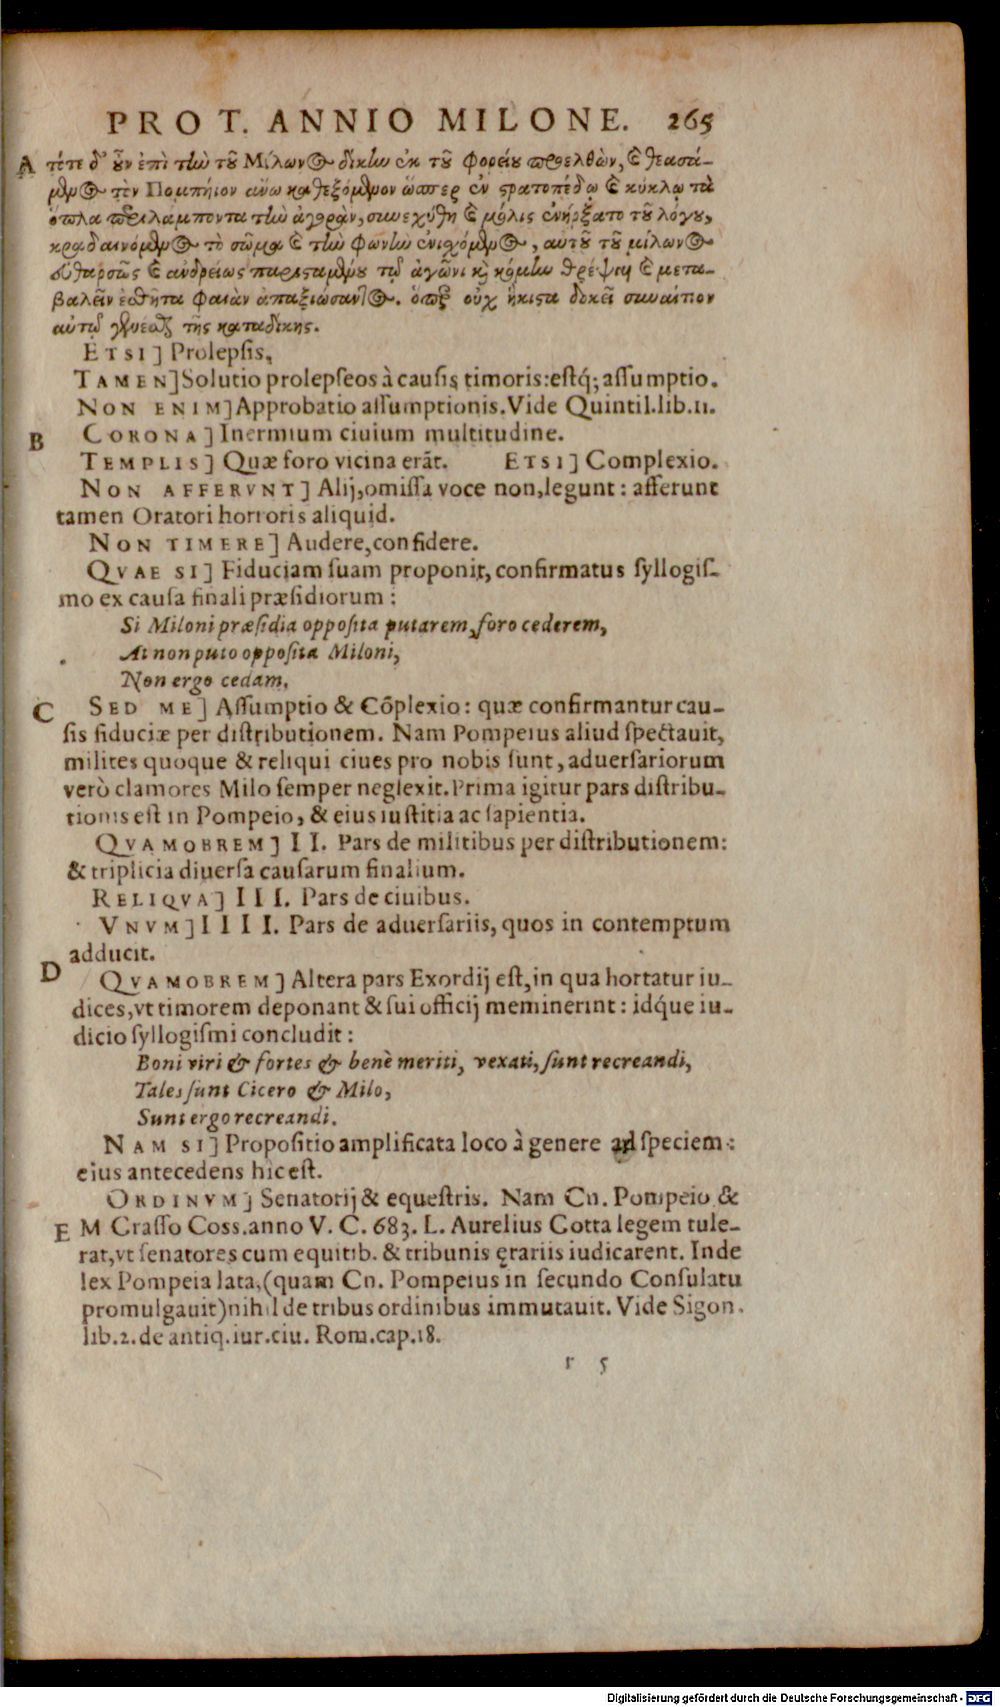 PRO T. ANNIO MILONE. 265
A τότε δ' οὖν ἐπὶ τὴν τοῦ Μίλωνος δίκην ἐκ τοῦ φορείου προελθὼν, καὶ θεασά-
μενος τὸν Πομπήιον ἄνω καθεζόμενον ὥσπερ ἐν στρατοπέδῳ καὶ κύκλῳ τὰ
ὅπλα περιλάμποντα τὴν ἀγορὰν, συνεχύθη καὶ μόλις ἐνήρξατο τοῦ λόγου,
κραδαινόμενος τὸ σῶμα καὶ τὴν φωνὴν ἐνισχόμενος, αὐτοῦ τοῦ μίλωνος
εὐθαρσῶς καὶ ἀνδρείως παρισταμένου τῷ ἀγῶνι καὶ κόμην θρέψαι καὶ μετα-
βαλεῖν ἐσθῆτα φαιὰν ἀπαξιώσαντος. ὅπερ οὐχ ἥκιστα δοκεῖ συναίτιον
αὐτῷ γενέσθαι τῆς καταδίκης.
ETSI] Prolepsis.
TAMEN] Solutio prolepseos à causis timoris: estq́; assumptio.
NON ENIM] Approbatio assumptionis. Vide Quintil. lib. 11.
B CORONA] Inermium ciuium multitudine.
TEMPLIS] Quæ foro vicina erãt. ETSI] Complexio.
NON AFFERVNT] Alij, omissa voce non, legunt: afferunt
tamen Oratori horroris aliquid.
NON TIMERE] Audere, confidere.
QVAE SI] Fiduciam suam proponit, confirmatus syllogis-
mo ex causa finali præsidiorum:
Si Miloni præsidia opposita putarem, foro cederem,
At non puto opposita Miloni,
Non ergo cedam.
C SED ME] Assumptio & Cõplexio: quæ confirmantur cau-
sis fiduciæ per distributionem. Nam Pompeius aliud spectauit,
milites quoque & reliqui ciues pro nobis sunt, aduersariorum
verò clamores Milo semper neglexit. Prima igitur pars distribu-
tionis est in Pompeio, & eius iustitia ac sapientia.
QVAMOBREM] II. Pars de militibus per distributionem:
& triplicia diuersa causarum finalium.
RELIQVA] III. Pars de ciuibus.
VNVM] IIII. Pars de aduersariis, quos in contemptum
adducit.
D QVAMOBREM] Altera pars Exordij est, in qua hortatur iu-
dices, vt timorem deponant & sui officij meminerint: idq́ue iu-
dicio syllogismi concludit:
Boni viri & fortes & benè meriti, vexati, sunt recreandi,
Tales sunt Cicero & Milo,
Sunt ergo recreandi.
NAM SI] Propositio amplificata loco à genere ad speciem:
eius antecedens hic est.
ORDINVM] Senatorij & equestris. Nam Cn. Pompeio &
E M Crasso Coss. anno V. C. 683. L. Aurelius Cotta legem tule-
rat, vt senatores cum equitib. & tribunis ęrariis iudicarent. Inde
lex Pompeia lata, (quam Cn. Pompeius in secundo Consulatu
promulgauit) nihil de tribus ordinibus immutauit. Vide Sigon.
lib. 2. de antiq. iur. ciu. Rom. cap. 18.
r 5
Digitalisierung gefördert durch die Deutsche Forschungsgemeinschaft - DFG